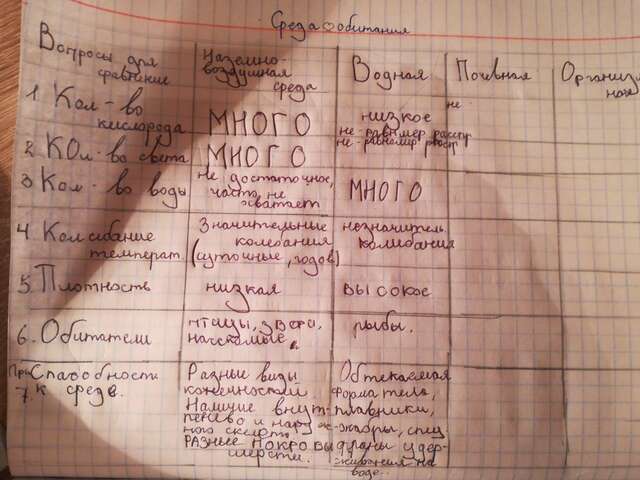 Среда обитания
Вопросы для
сравнение
Наземно-
воздушная
среда
Водная
Почвенная
Организ
ная
1 Кол-во
кислорода
МНОГО
низкое
не-равнмер распр
не
2 КОл-во света
МНОГО
не-равномер расп
3 Кол-во воды
не достаточное,
часто не
хватает
МНОГО
4 Колебание
температ.
Значительные
колебания
(суточные, годов)
незначитель
колибания
5. Плотность
низкая
высокое
6. Обитатели
птицы, звери,
насекомые.
рыбы.
При Способности
7. к среде.
Разные виды
конечностей
Наличие внут-
ренего и наруж-
ного скелета
РАЗНЫЕ ПОКРОВЫ
шерсти.
Обтекаемая
форма тела,
плавники,
жабры, спец
для удер-
живания на
воде..